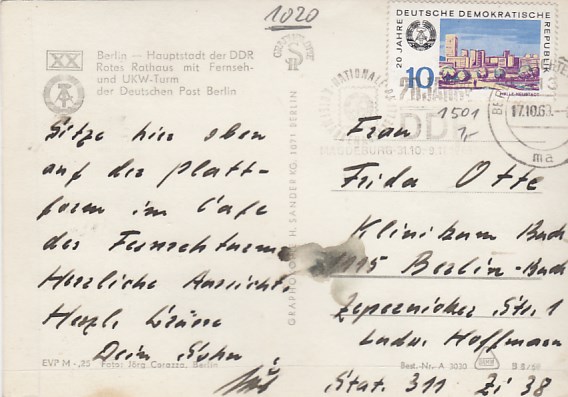 1020
XX
Berlin — Hauptstadt der DDR
Rotes Rathaus mit Fernseh-
und UKW-Turm
der Deutschen Post Berlin
20 JAHRE DEUTSCHE DEMOKRATISCHE REPUBLIK
10
HALLE-NEUSTADT
20 JAHRE
DDR
MAGDEBURG 31.10.-9.11.
17.10.69
ma
1501
1,-
Sitze hier oben
auf der Platt-
form im Cafe
des Fernsehturms
Herzliche Aussicht.
Herzl. Grüsse
Dein Sohn
GRAPHOKOPIE H. SANDER KG, 1071 BERLIN
Frau
Frida Otte
Klinikum Buch
1115 Berlin-Buch
Zepernicker Str. 1
Ludw. Hoffmann
Stat. 311 Zi 38
EVP M -,25 Foto: Jörg Carozza, Berlin
Best.-Nr. A 3030
B 8/69